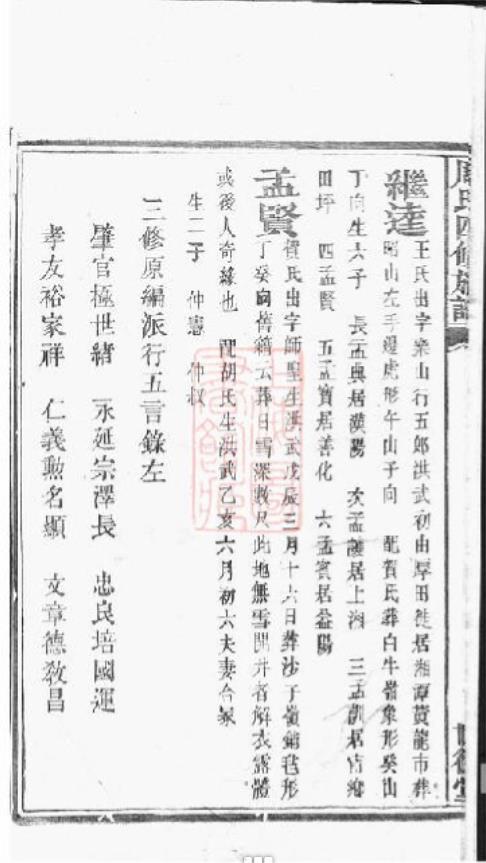 周氏四修族譜
世德堂
繼達
王氏出字樂山行五郎洪武初由厚田徙居湘潭黃龍市葬
昭山左手邊虎形午山子向 配賀氏葬白牛嶺象形癸山
丁向生六子 長孟輿居漢陽 次孟護居上湘 三孟訓居甯鄉
田坪 四孟賢 五孟寶居善化 六孟賓居益陽
孟賢
賀氏出字師聖生洪武戊辰三月十六日葬沙子嶺鋪毡形
丁癸向舊籍云葬日雪深數尺此地無雪開井者解衣露體
或後人奇緣也 配胡氏生洪武乙亥六月初六夫妻合冢
生二子 仲憲 仲叔
三修原編派行五言錄左
肇官極世緒 永延宗澤長 忠良培國運
孝友裕家祥 仁義勳名顯 文章德敎昌